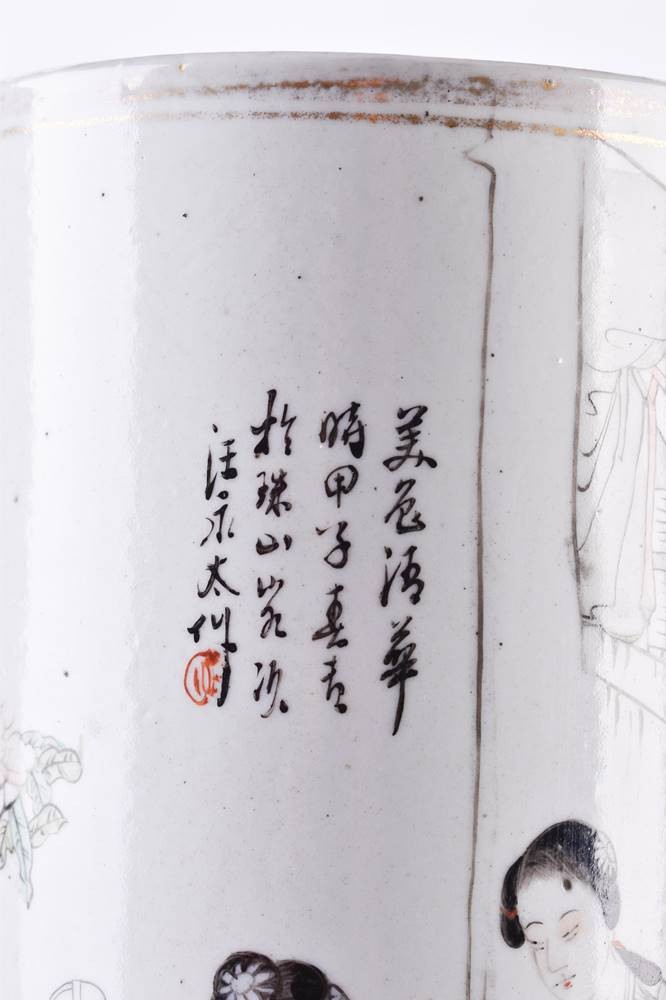 美色清華
時甲子春月
於珠山客次
汪永太作